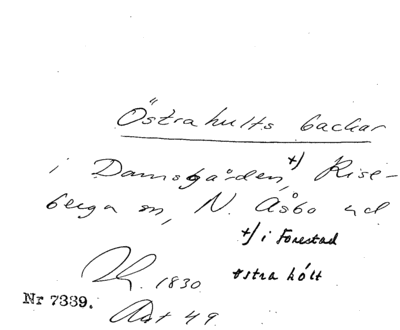 Östrahults backar
i Damsgården, +) Rise-
berga sn, N. Åsbo hd
+) i Forestad
östra hólt
1830
Nr 7339.
Akt 49